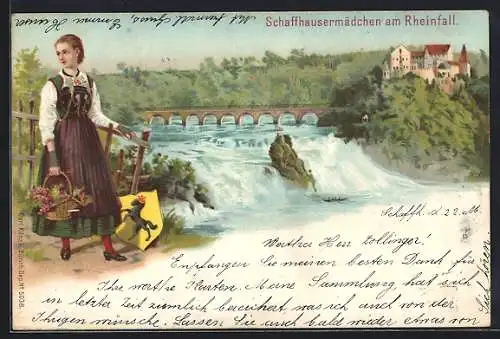 Schaffhausermädchen am Rheinfall.
Mit Gruss
Schaffh. d. 22. M.
Werther Herr Zollinger!
Empfangen Sie meinen besten Dank für
Ihre werthe Karten. Meine Sammlung hat sich
in letzter Zeit ziemlich bereichert was ich auch von der
Ihrigen wünsche. Lassen Sie auch bald wieder etwas von
hören
Zürich Dep. Nº 5008.